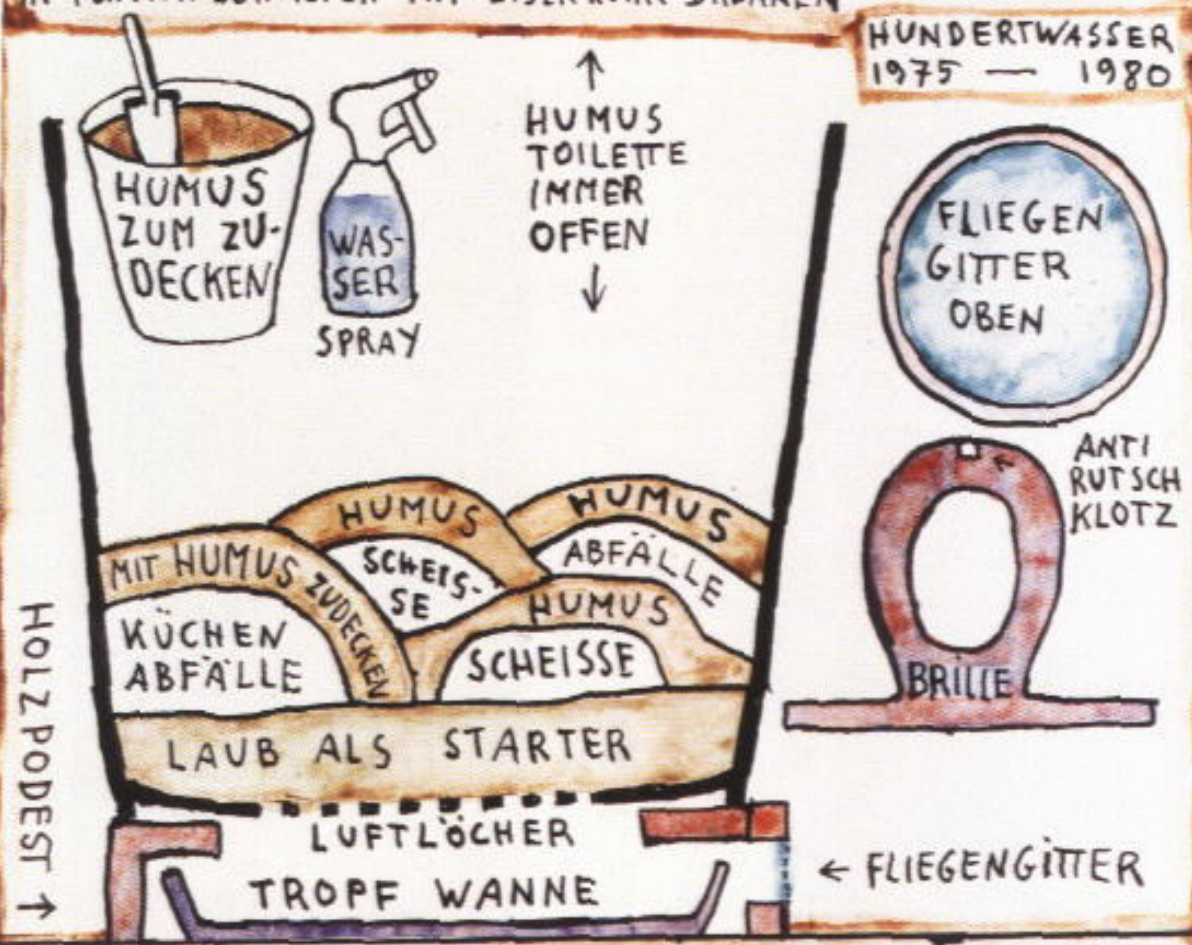 HUNDERTWASSER
1975 — 1980
HUMUS
ZUM ZU-
DECKEN
WAS-
SER
SPRAY
↑
HUMUS
TOILETTE
IMMER
OFFEN
↓
FLIEGEN
GITTER
OBEN
ANTI
RUTSCH
KLOTZ
←
BRILLE
HUMUS
HUMUS
MIT HUMUS ZUDECKEN
SCHEIS-
SE
ABFÄLLE
HUMUS
KÜCHEN
ABFÄLLE
SCHEISSE
LAUB ALS STARTER
HOLZPODEST →
LUFTLÖCHER
TROPF WANNE
← FLIEGENGITTER